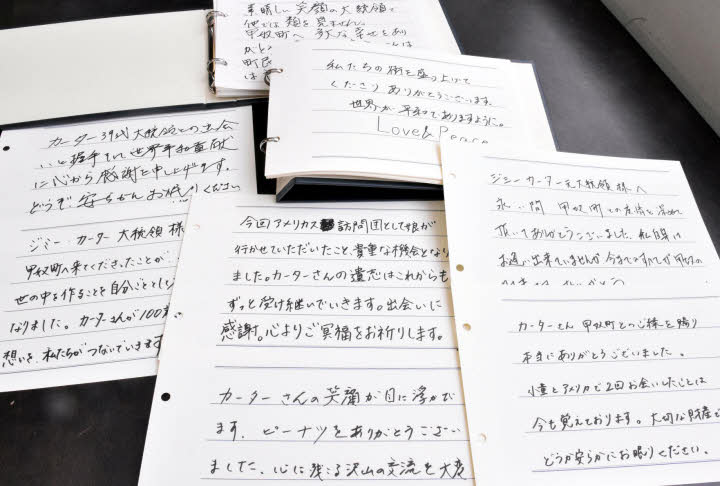 素晴しい笑顔の大統領も
甲奴町へ
私たちの街を盛り上げて
くださりありがとうございます。
世界が平和でありますように。
Love&Peace
カーター39代大統領との出会
いと握手そして世界平和貢献
に心から感謝を申し上げます。
どうぞ安らかにお眠りください
ジミー・カーター大統領様
甲奴町へ来てくださったことが
世の中を作ることを自分ごととし
なりました。カーターさんが100
想いを私たちがつないでいきます
今回アメリカ訪問団として娘が
行かせていただいたこと、貴重な機会となり
ました。カーターさんの遺志はこれからも
ずっと受け継いでいきます。出会いに
感謝。心よりご冥福をお祈りします。
カーターさんの笑顔が目に浮かび
ます。ピーナツをありがとうござい
ました、心に残る沢山の交流を大変
ジミーカーター元大統領様へ
永い間 甲奴町との友情を深めて
頂いてありがとうございました、私自身は
お逢い出来ていませんが今までのすべてが甲奴の
カーターさん 甲奴町とのご縁を賜り
本当にありがとうございました。
小童とアメリカで2回お会いしたことは
今も覚えております。大切な財産で
どうか安らかにお眠りください。